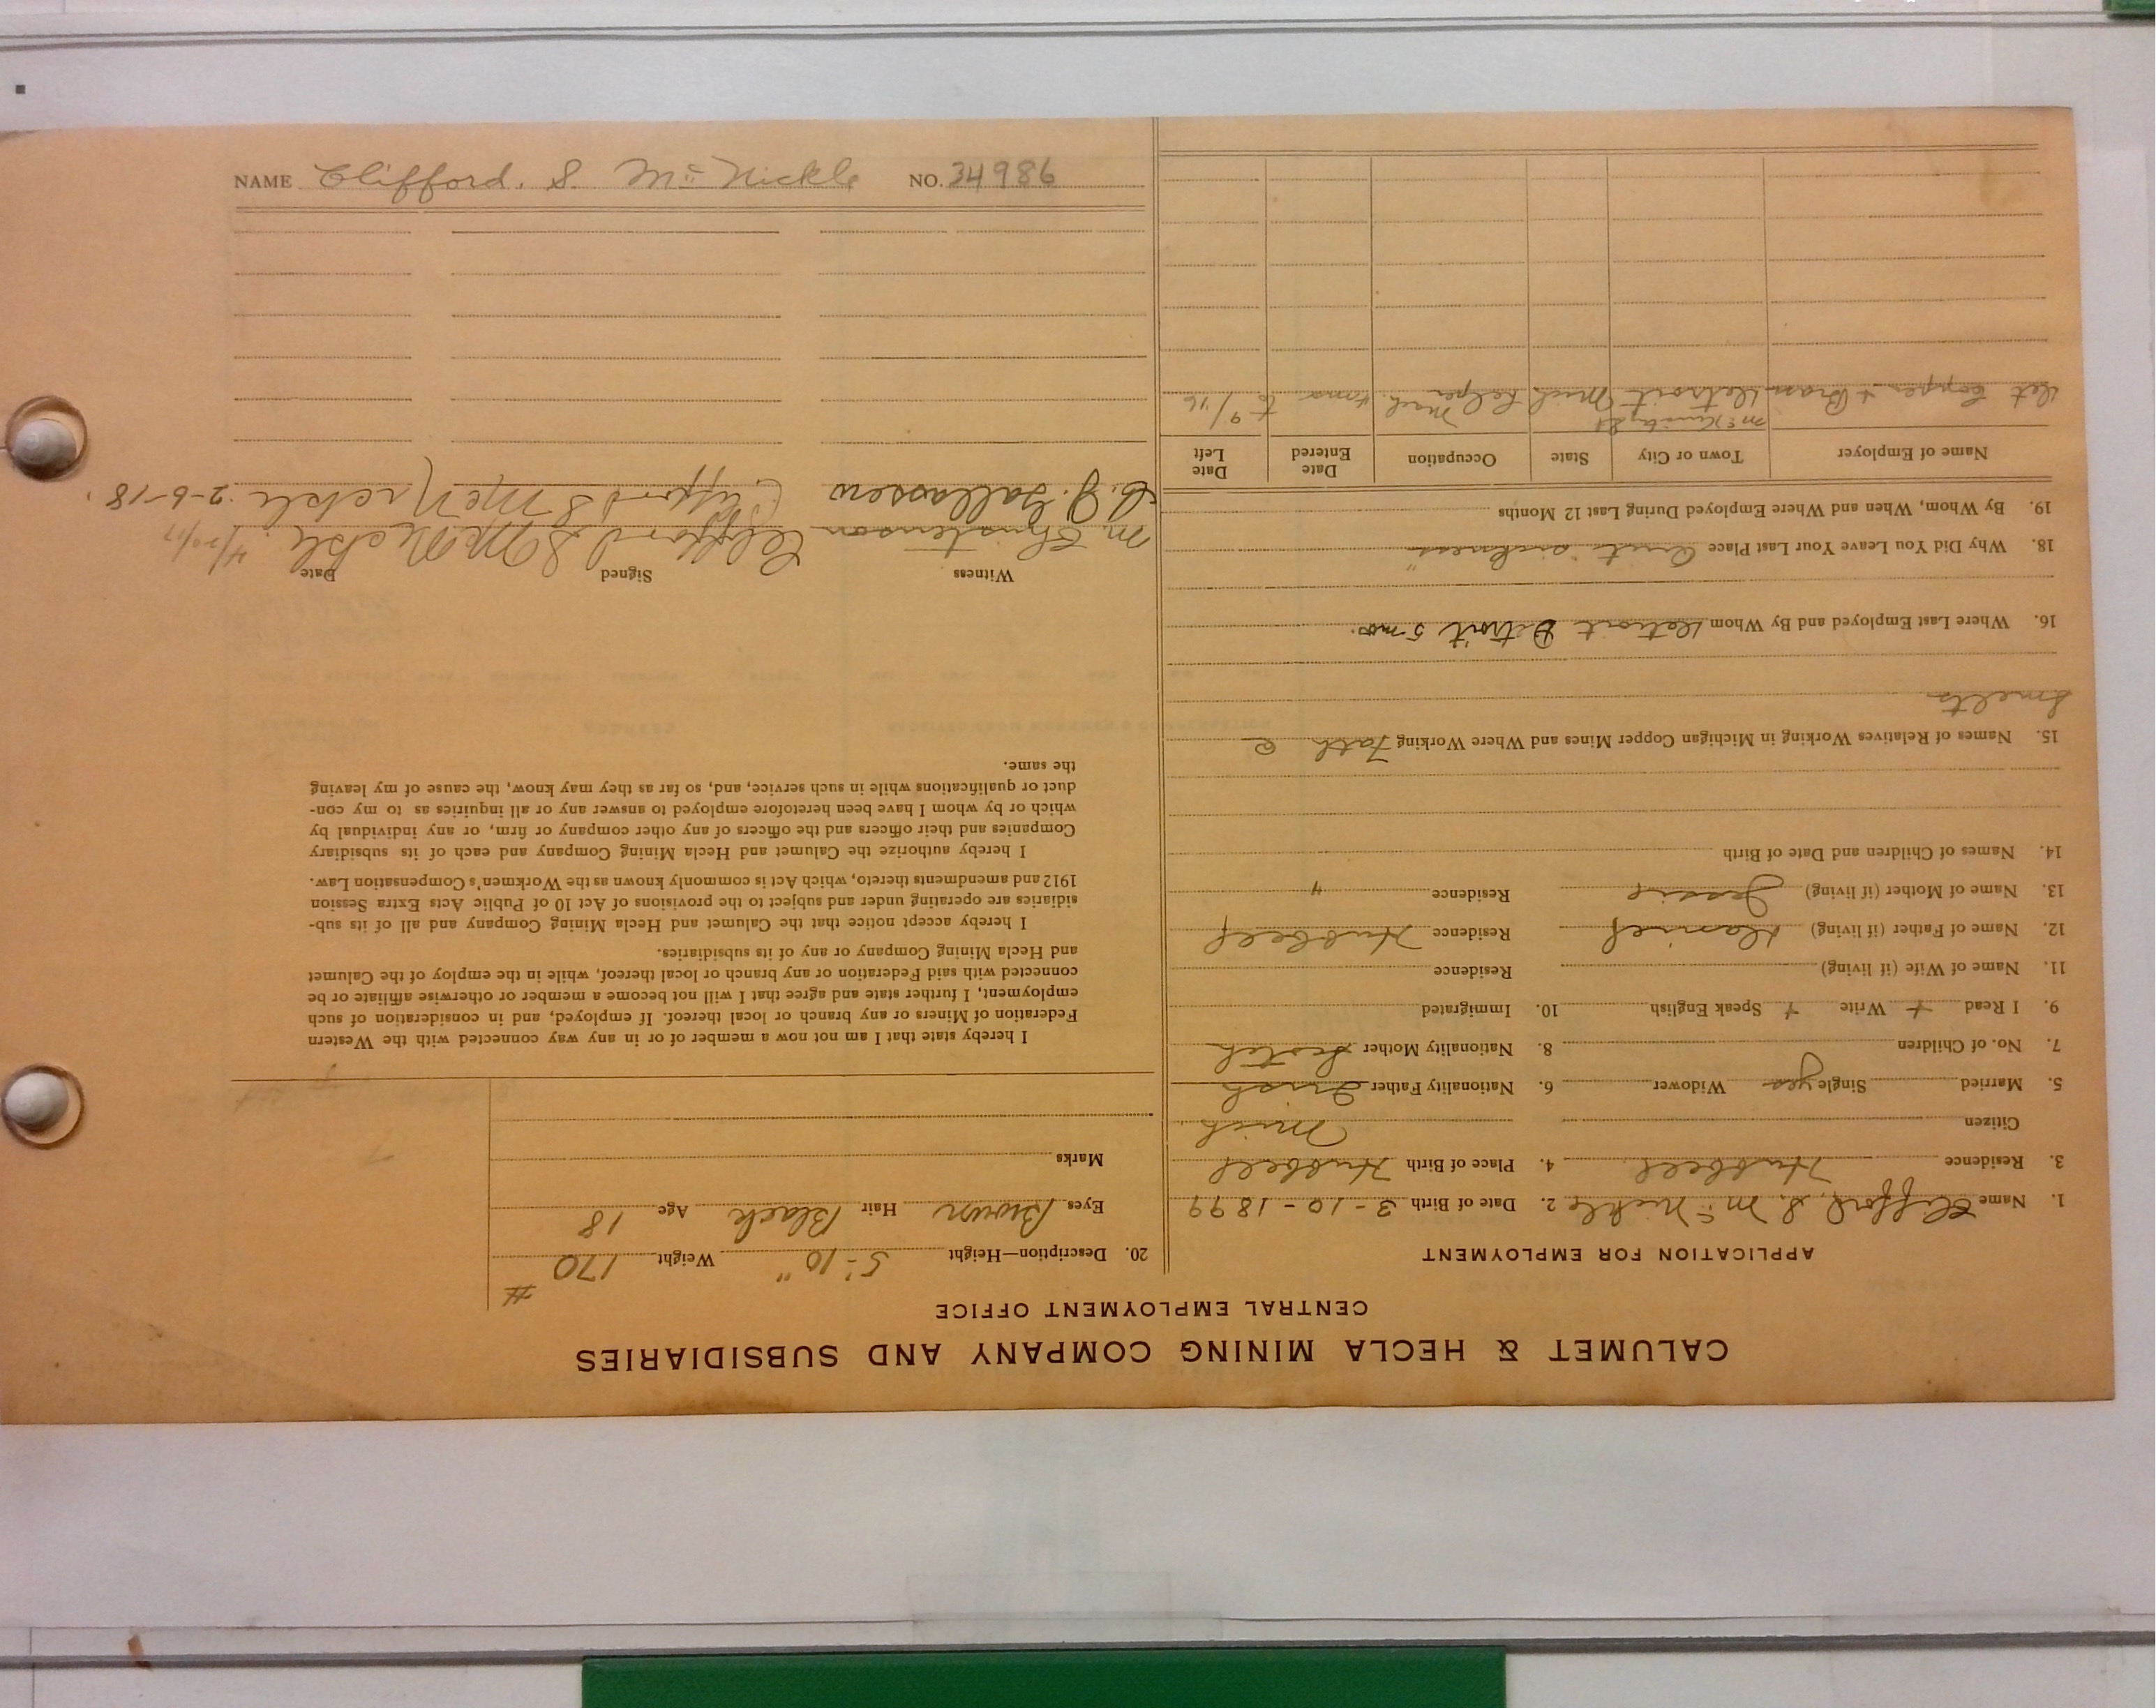 NAME Clifford. S. McNickle NO. 34986
CALUMET & HECLA MINING COMPANY AND SUBSIDIARIES
CENTRAL EMPLOYMENT OFFICE
APPLICATION FOR EMPLOYMENT
1. Name Clifford S. McNickle 2. Date of Birth 3-10-1899
3. Residence Hubbell 4. Place of Birth Hubbell
Citizen Mich
5. Married Single yes Widower 6. Nationality Father Irish
7. No. of Children 8. Nationality Mother Scotch
9. I Read + Write + Speak English 10. Immigrated
11. Name of Wife (if living) Residence
12. Name of Father (if living) Daniel Residence Hubbell
13. Name of Mother (if living) Jessie Residence "
14. Names of Children and Date of Birth
15. Names of Relatives Working in Michigan Copper Mines and Where Working Fath e
Smelts
16. Where Last Employed and By Whom Detroit Detroit 5 mos.
18. Why Did You Leave Your Last Place Quit "sickness"
19. By Whom, When and Where Employed During Last 12 Months
Name of Employer Town or City State Occupation Date Entered Date Left
Det Copper + Brass Detroit Mich Mach. helper 9/16
20. Description—Height 5'-10" Weight 170 #
Eyes Brown Hair Black Age 18
Marks
I hereby state that I am not now a member of or in any way connected with the Western
Federation of Miners or any branch or local thereof. If employed, and in consideration of such
employment, I further state and agree that I will not become a member or otherwise affiliate or be
connected with said Federation or any branch or local thereof, while in the employ of the Calumet
and Hecla Mining Company or any of its subsidiaries.
I hereby accept notice that the Calumet and Hecla Mining Company and all of its sub-
sidiaries are operating under and subject to the provisions of Act 10 of Public Acts Extra Session
1912 and amendments thereto, which Act is commonly known as the Workmen's Compensation Law.
I hereby authorize the Calumet and Hecla Mining Company and each of its subsidiary
Companies and their officers and the officers of any other company or firm, or any individual by
which or by whom I have been heretofore employed to answer any or all inquiries as to my con-
duct or qualifications while in such service, and, so far as they may know, the cause of my leaving
the same.
Witness Signed Date
M. Christenson Clifford S McNickle 4/20/17
C. J. Clifford S McNickle 2-6-18.